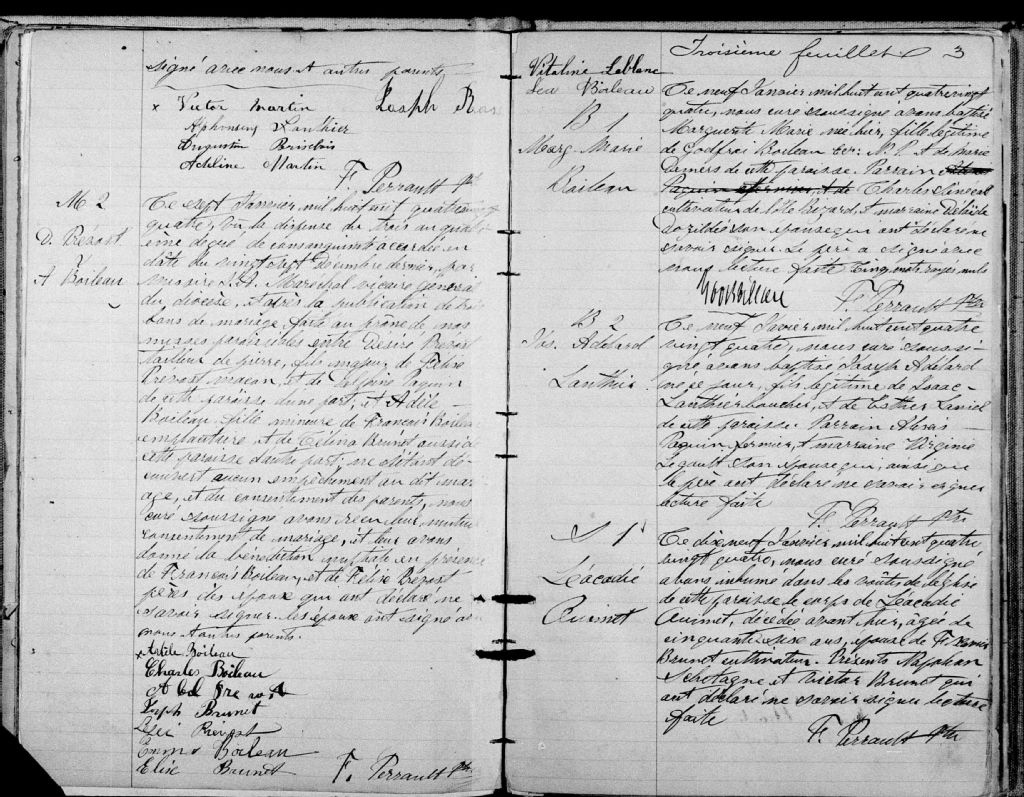 signé avec nous et autres parents
x Victor Martin Joseph
Alphonsine Lanthier
Augustin Brisebois
Adeline Martin
F. Perrault Ptre
M 2
D. Prévost
&
A Boileau
Ce sept Janvier mil huit cent quatrevingt
quatre, vu la dispense du trois au quatri-
ème degré de consanguinité accordée en
date du vingt sept Décembre dernier, par
messire Maréchal vicaire général
du diocèse, et après la publication de trois
bans de mariage faite au prône de nos
messes paroissiales entre Désiré Prévost
tailleur de pierre, fils majeur de Félix
Prevost maçon, et de Paquin
de cette paroisse d'une part, et Adèle
Boileau fille mineure de François Boileau
et de Célina Brunet aussi de
cette paroisse d'autre part, ne s'étant dé-
couvert aucun empêchement au dit mari-
age, et du consentement des parents, nous
curé soussigné avons reçu leur mutuel
consentement de mariage, et leur avons
donné la bénédiction nuptiale en présence
de François Boileau, et de Félix Prévost
pères des époux qui ont déclaré ne
savoir signer. les époux ont signé avec
nous et autres parents.
x Adèle Boileau
Charles Boileau
Joseph Brunet
Prévost
Emma Boileau
Elise Brunet F. Perrault Ptre
Troisième feuillet 3
Vitaline Leblanc
Léa Boileau
B 1
Marg. Marie
Boileau
Ce neuf Janvier mil huit cent quatre vingt
quatre, nous curé soussigné avons baptisé
Marguerite Marie née hier, fille légitime
de Godfroi Boileau M.P.P. et de Marie
Demers de cette paroisse. Parrain
Paquin fermier, et de Charles Sénécal
cultivateur de l'Ile Bizard, et marraine
son épouse qui ont déclaré ne
savoir signer. Le père a signé avec
nous lecture faite Cinq mots rayés nuls
F. Perrault Ptre
B 2
Jos. Adélard
Lanthier
Ce neuf Janvier mil huit cent quatre
vingt quatre, nous curé soussi-
gné avons baptisé Joseph Adélard
né ce jour, fils légitime de Isaac
Lanthier boucher, et de Esther Daniel
de cette paroisse. Parrain
Paquin fermier, et marraine Virginie
Legault son épouse qui, ainsi que
le père ont déclaré ne savoir signer
lecture faite
F. Perrault Ptre
S 1
Léacadie
Ouimet
Ce dix neuf Janvier mil huit cent quatre
vingt quatre, nous curé soussigné
avons inhumé dans les voûtes de l'église
de cette paroisse le corps de Léacadie
Ouimet, décédée avant hier, agée de
cinquante seize ans, épouse de
Brunet cultivateur. Présents Napoléon
et Victor Brunet qui
ont déclaré ne savoir signer lecture
faite
F. Perrault Ptre